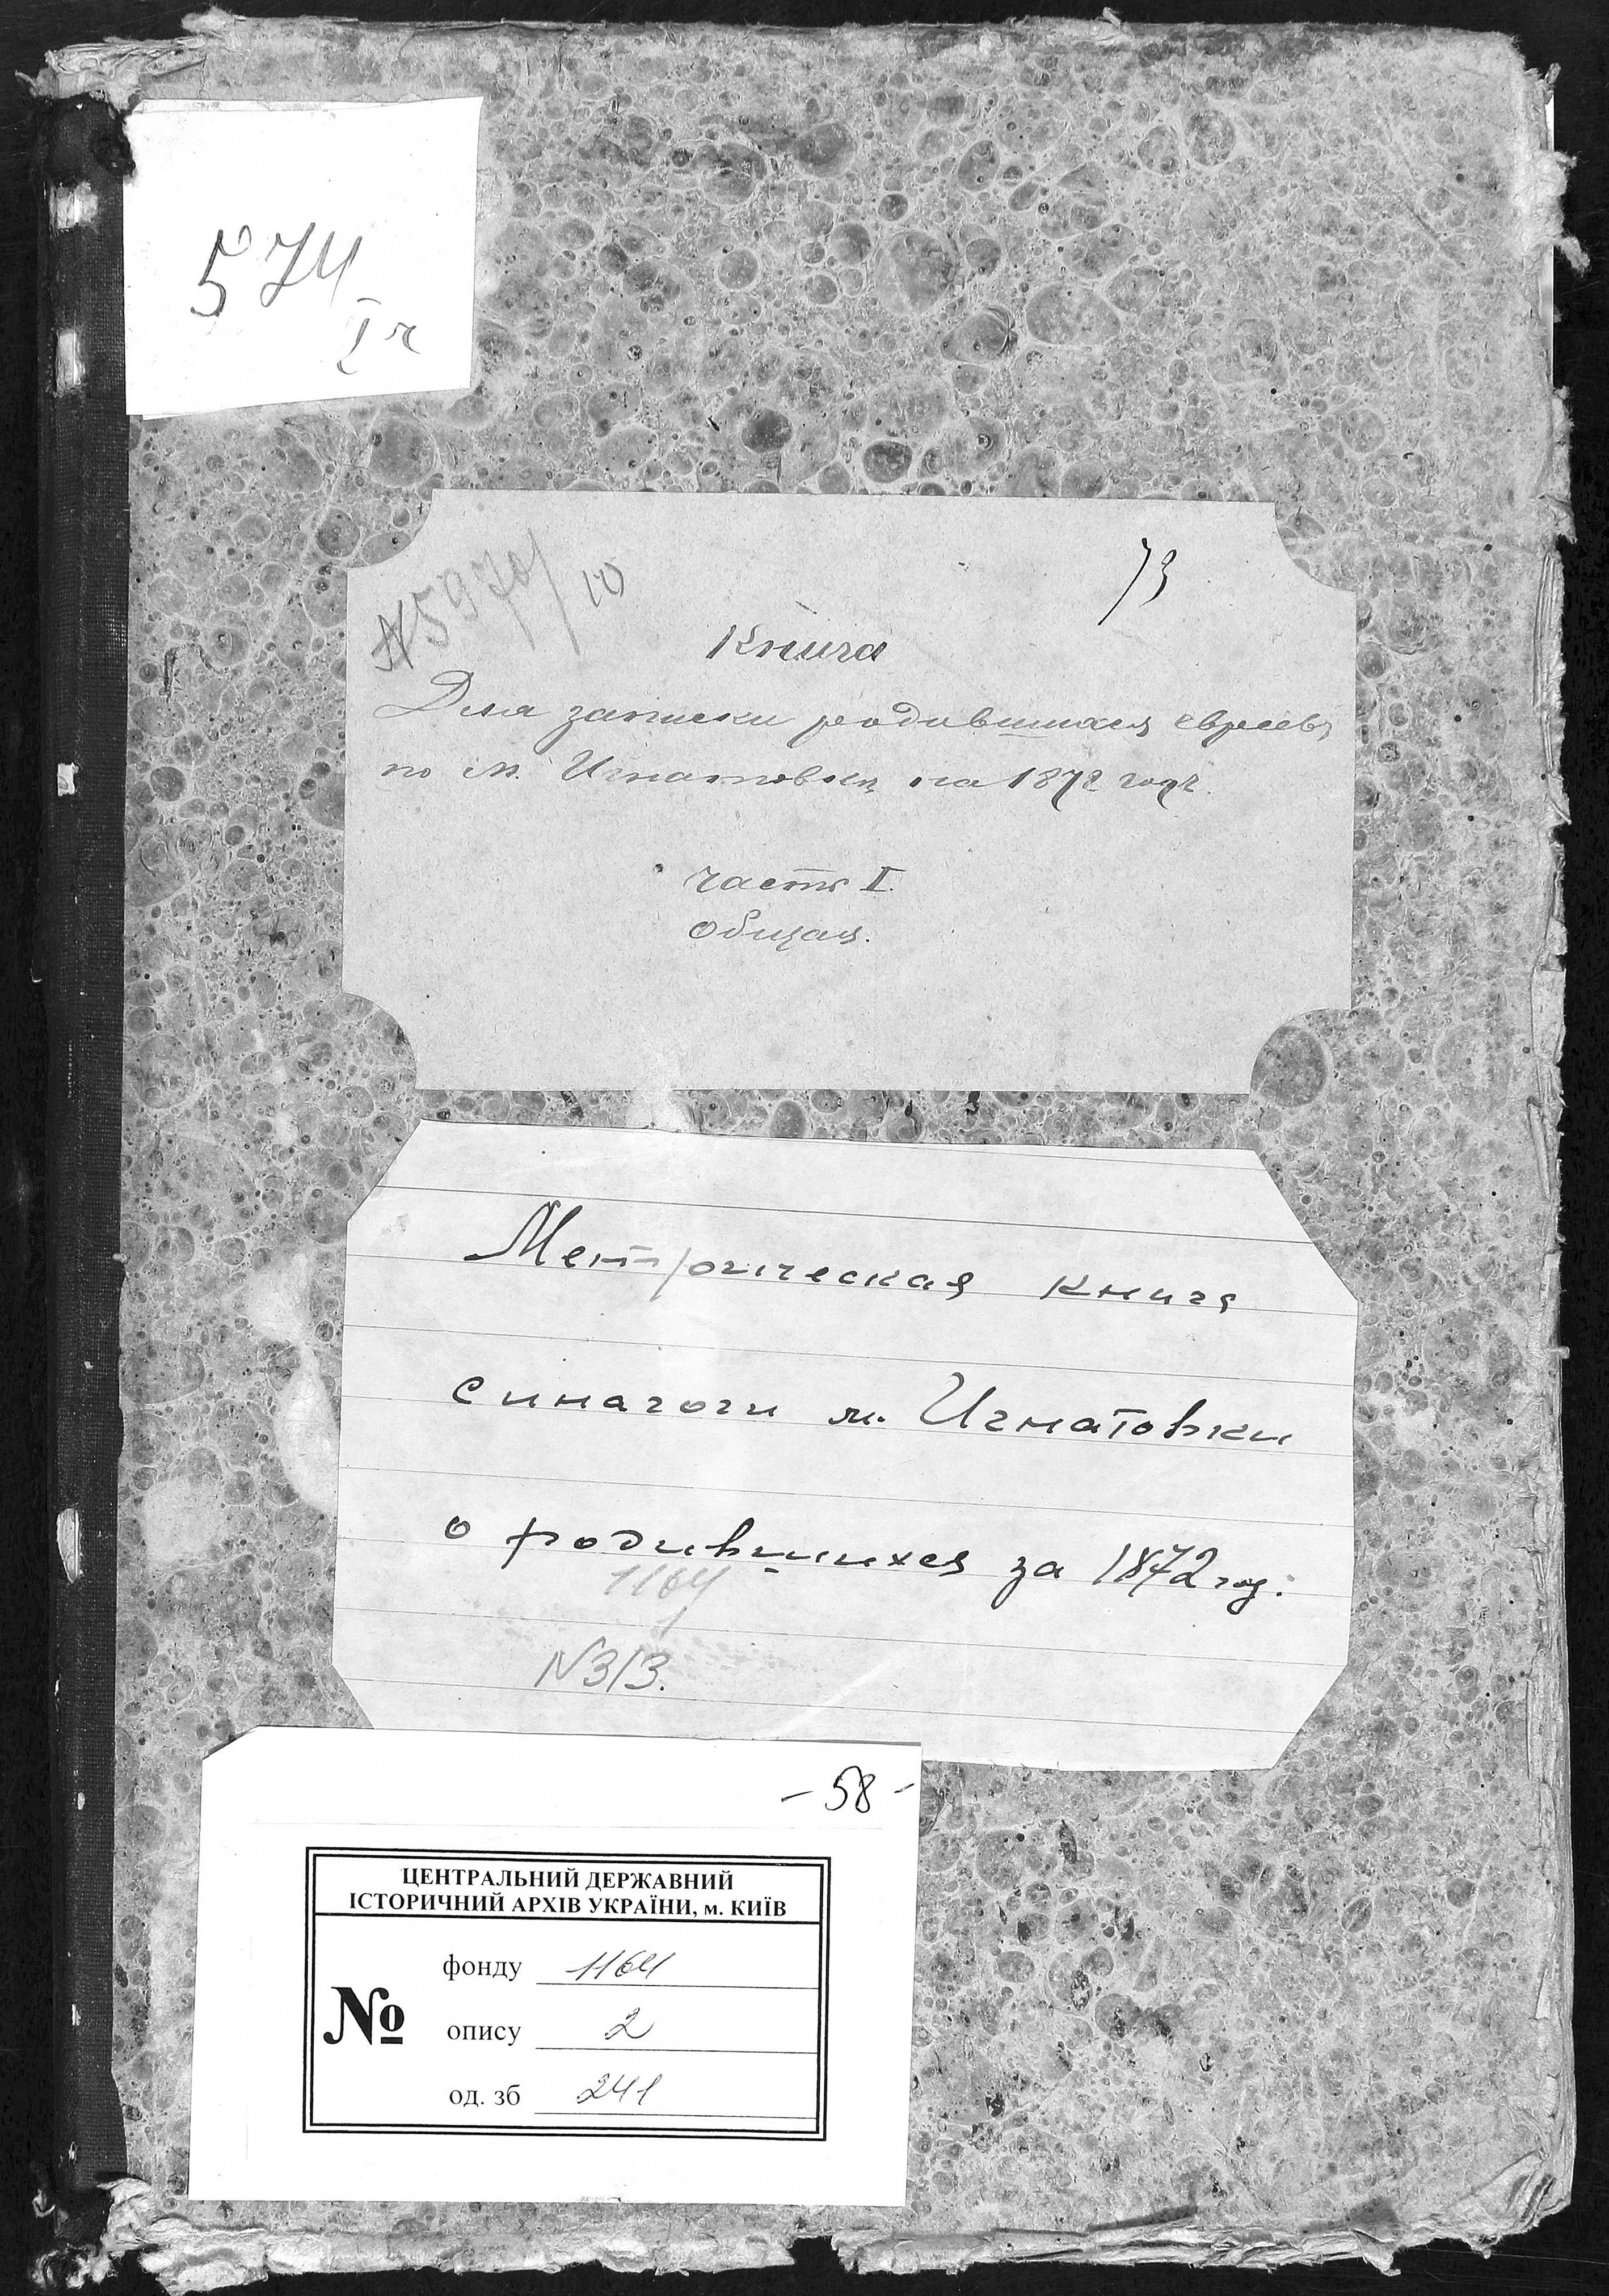 574
I ч
№5970/10
73
Книга
Для записки родившихся евреевъ
по м. Игнатовки на 1872 годъ.
Часть I.
Общая.
Метрическая книга
синагоги м. Игнатовки
о родившихся за 1872 год.
1164
N313.
- 58 -
ЦЕНТРАЛЬНИЙ ДЕРЖАВНИЙ
ІСТОРИЧНИЙ АРХІВ УКРАЇНИ, м. КИЇВ
№
фонду 1164
опису 2
од. зб 241